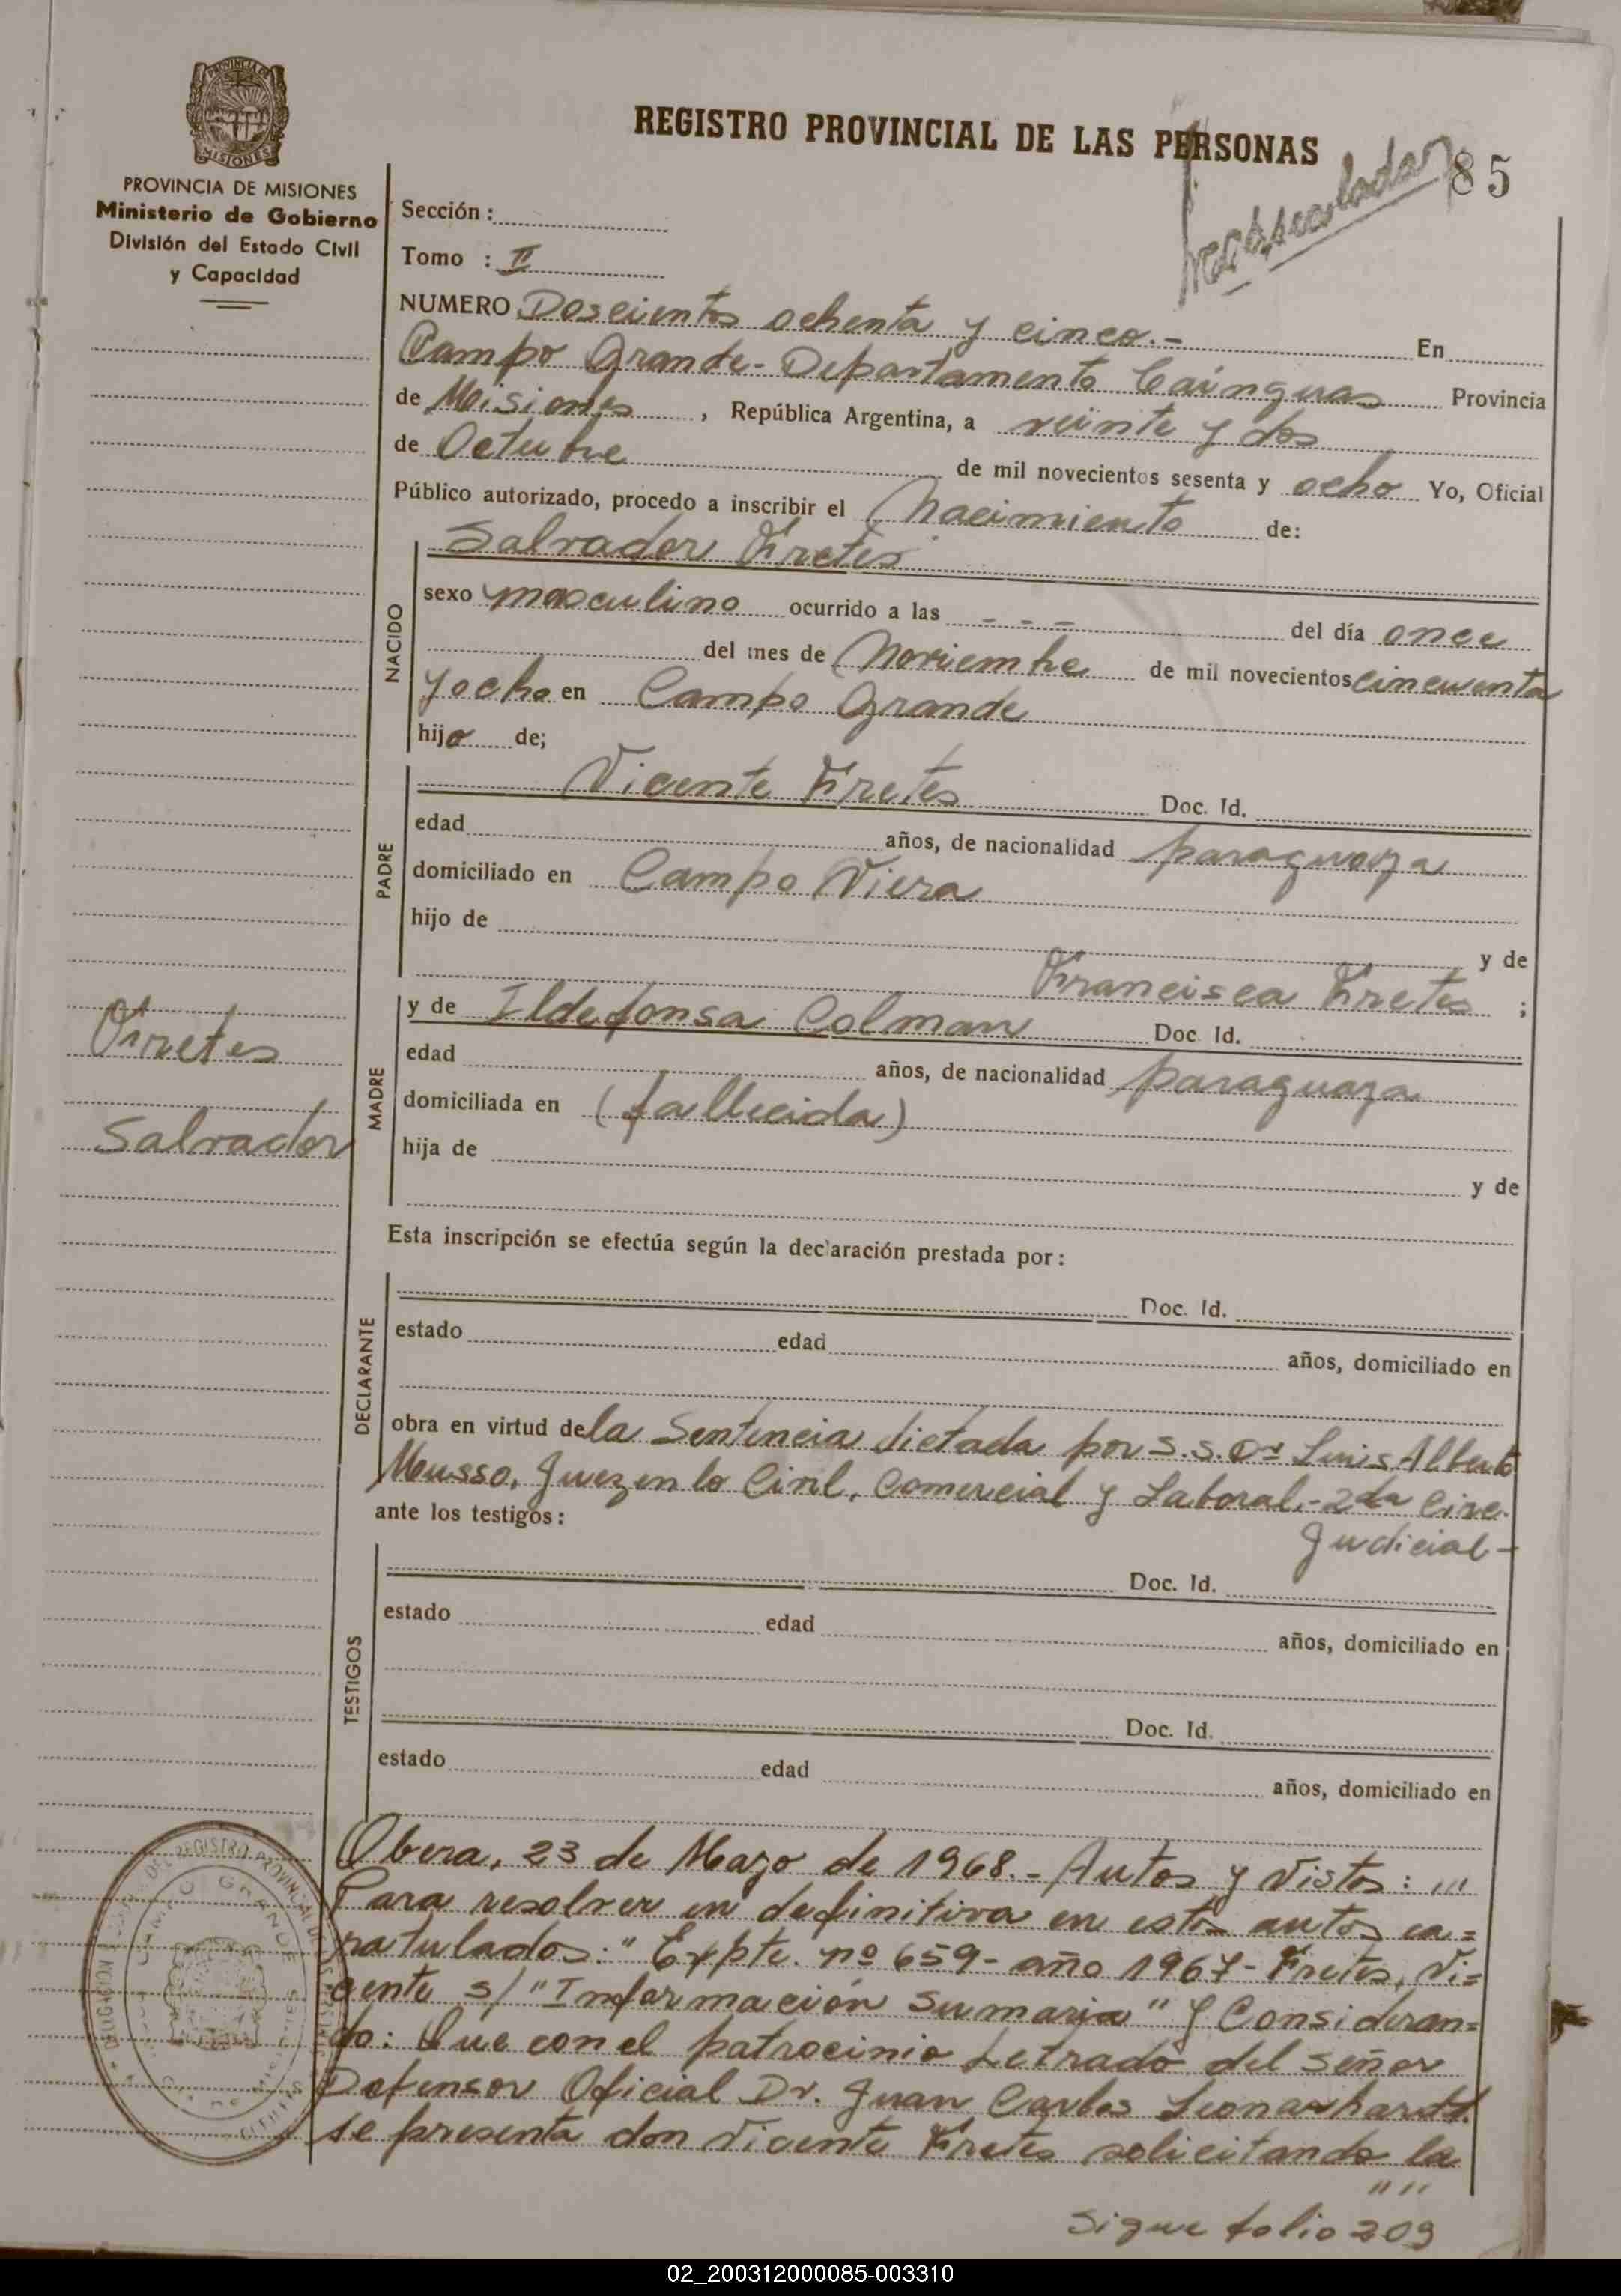 REGISTRO PROVINCIAL DE LAS PERSONAS
85
MISIONES
PROVINCIA DE MISIONES
Ministerio de Gobierno
División del Estado Civil
y Capacidad
Sección :
Tomo : II
NUMERO Doscientos ochenta y cinco.- En
Campo Grande - Departamento Cainguas Provincia
de Misiones, República Argentina, a veinte y dos
de Octubre de mil novecientos sesenta y ocho Yo, Oficial
Público autorizado, procedo a inscribir el Nacimiento de:
NACIDO
Salvador Fretes
sexo masculino ocurrido a las - - - del día once
del mes de Noviembre de mil novecientos cincuenta
y ocho en Campo Grande
hijo de;
PADRE
Vicente Fretes Doc. Id.
edad años, de nacionalidad paraguaya
domiciliado en Campo Viera
hijo de y de
Francisca Fretes ;
MADRE
y de Ildefonsa Colman Doc. Id.
edad años, de nacionalidad paraguaya
domiciliada en (fallecida)
hija de y de
Fretes
Salvador
Esta inscripción se efectúa según la declaración prestada por:
DECLARANTE
Doc. Id.
estado edad años, domiciliado en
obra en virtud de la Sentencia dictada por S.S. Dr Luis Alberto
Musso, Juez en lo Civil, Comercial y Laboral.- 2da Circ.
Judicial -
ante los testigos:
TESTIGOS
Doc. Id.
estado edad años, domiciliado en
Doc. Id.
estado edad años, domiciliado en
Obera, 23 de Mayo de 1968.- Autos y Vistos: '''
Para resolver en definitiva en estos autos ca=
ratulados: " Expte. nº 659- año 1967- Fretes, Vi=
cente s/ "Información Sumaria" y Consideran=
do: Que con el patrocinio Letrado del señor
Defensor Oficial Dr. Juan Carlos Leonarhardt.
se presenta don Vicente Fretes solicitando la
" "
Sigue folio 209
CAMPO GRANDE
02_200312000085-003310